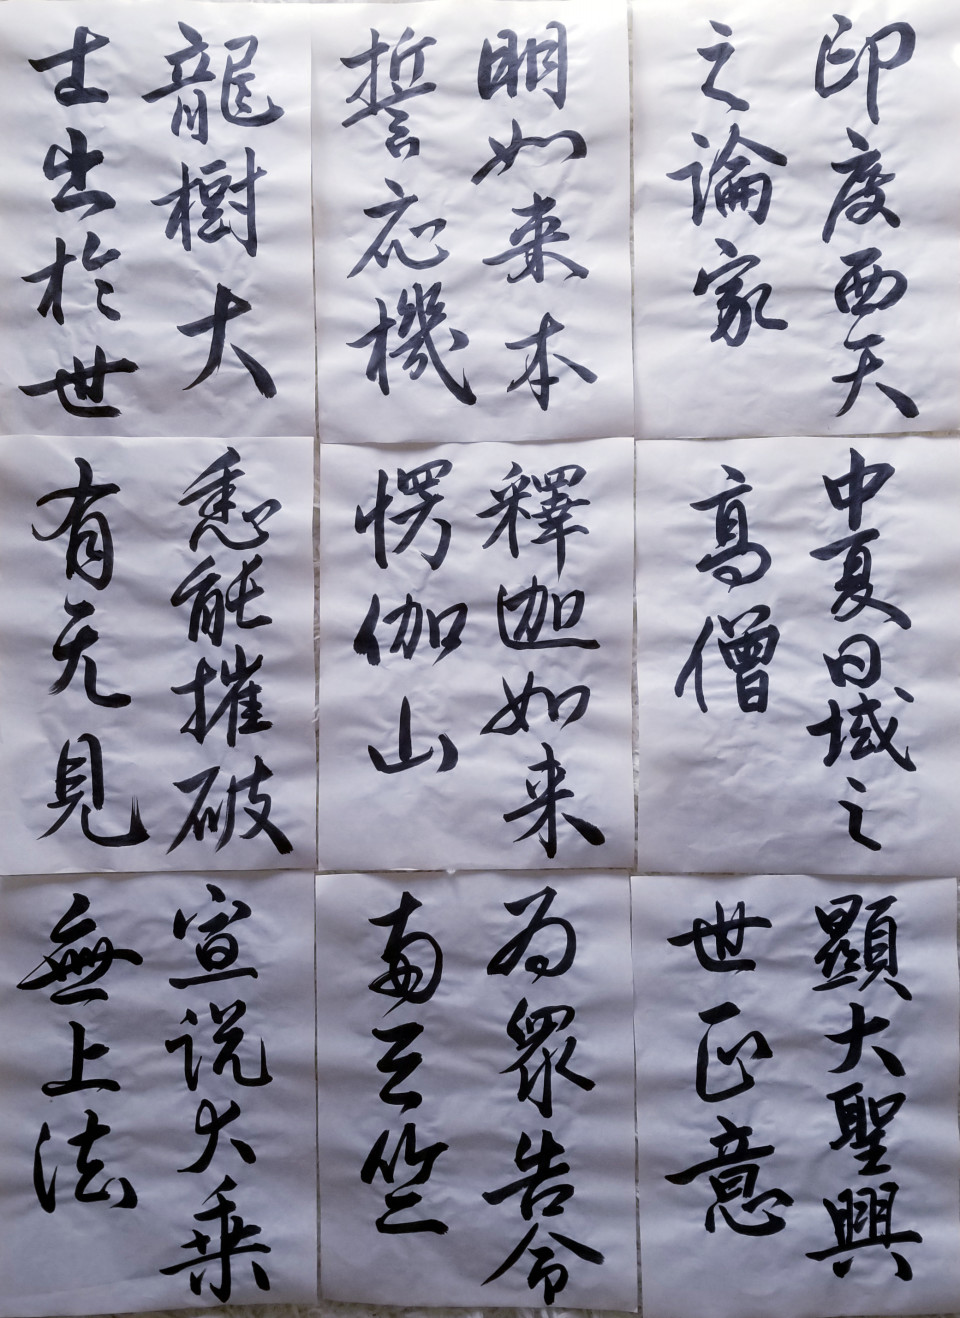 印度西天
之論家
中夏日域之
高僧
顯大聖興
世正意
明如来本
誓応機
釋迦如来
楞伽山
為眾告命
南天竺
龍樹大
士出於世
悉能摧破
有无見
宣説大乗
無上法